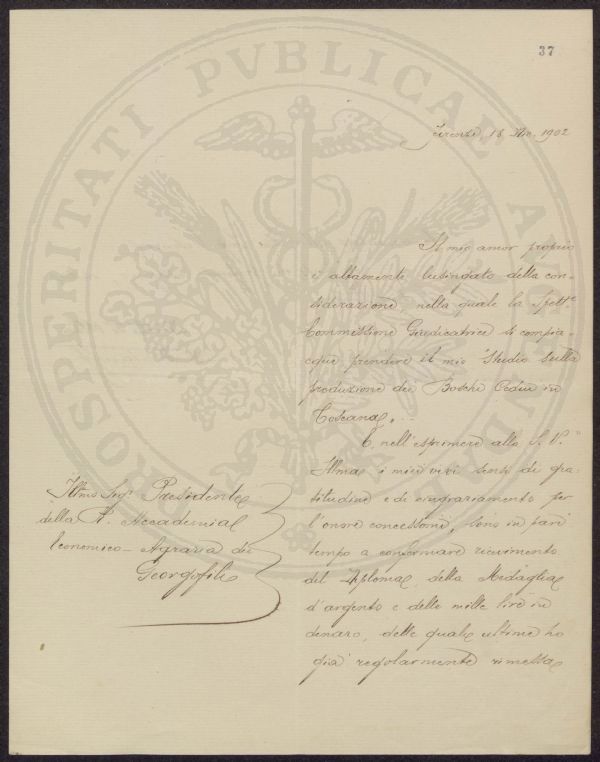 37
Firenze, 18 Nov. 1902
Il mio amor proprio
è altamente lusingato della con-
siderazione, nella quale la Spett.e
Commissione Giudicatrice si compia-
cque prendere il mio Studio sulla
produzione dei Boschi Cedui in
Toscana.
E, nell'esprimere alla S. V.
Illma i miei vivi sensi di gra-
titudine e di ringraziamento per
l'onore concessomi, sono in pari
tempo a confermare ricevimento
del Diploma, della Medaglia
d'argento e delle mille lire in
denaro, delle quali ultime ho
già regolarmente rimessa
Illmo Sigr. Presidente
della R. Accademia
Economico-Agraria dei
Georgofili
PROSPERITATI PVBLICAE